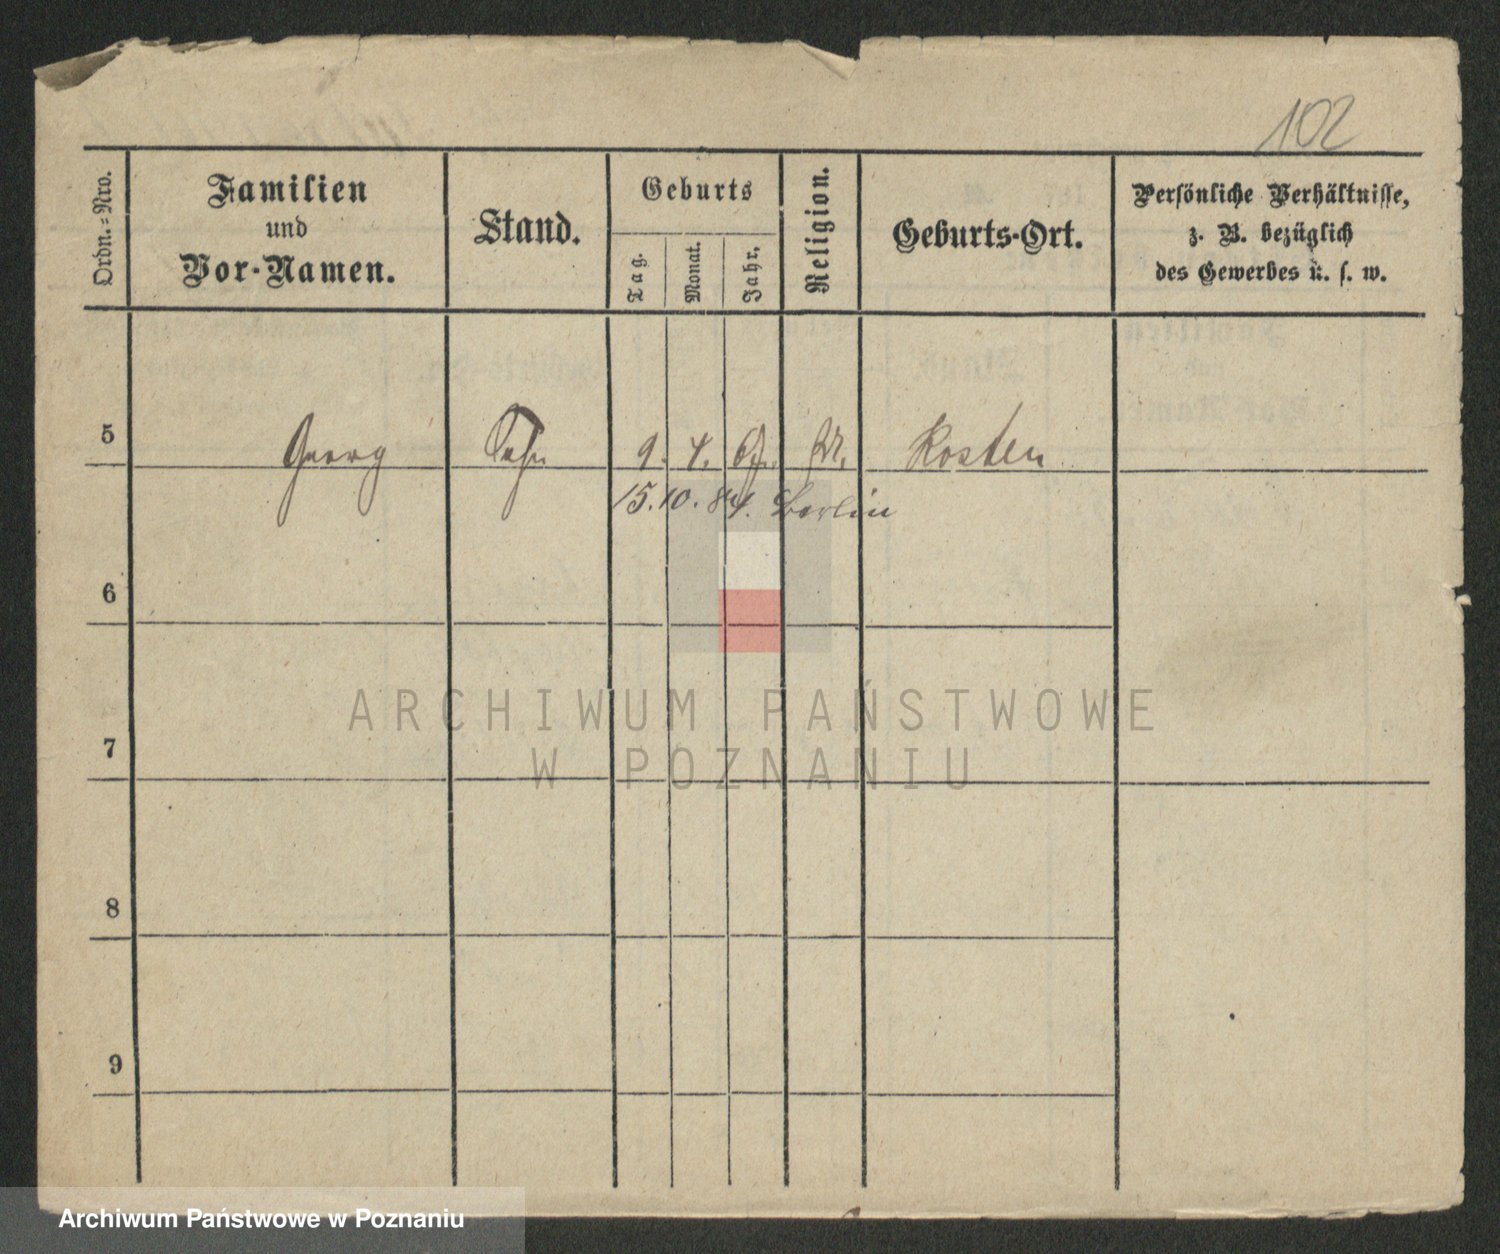 102
Ordn.-Nro.
Familien
und
Vor-Namen.
Stand.
Geburts
Tag.
Monat.
Jahr.
Religion.
Geburts-Ort.
Persönliche Verhältnisse,
z. B. bezüglich
des Gewerbes u. s. w.
5 Georg Sohn 9. 4. Kosten
15. 10. 84. Berlin
6
7
8
9
ARCHIWUM PAŃSTWOWE
W POZNANIU
Archiwum Państwowe w Poznaniu